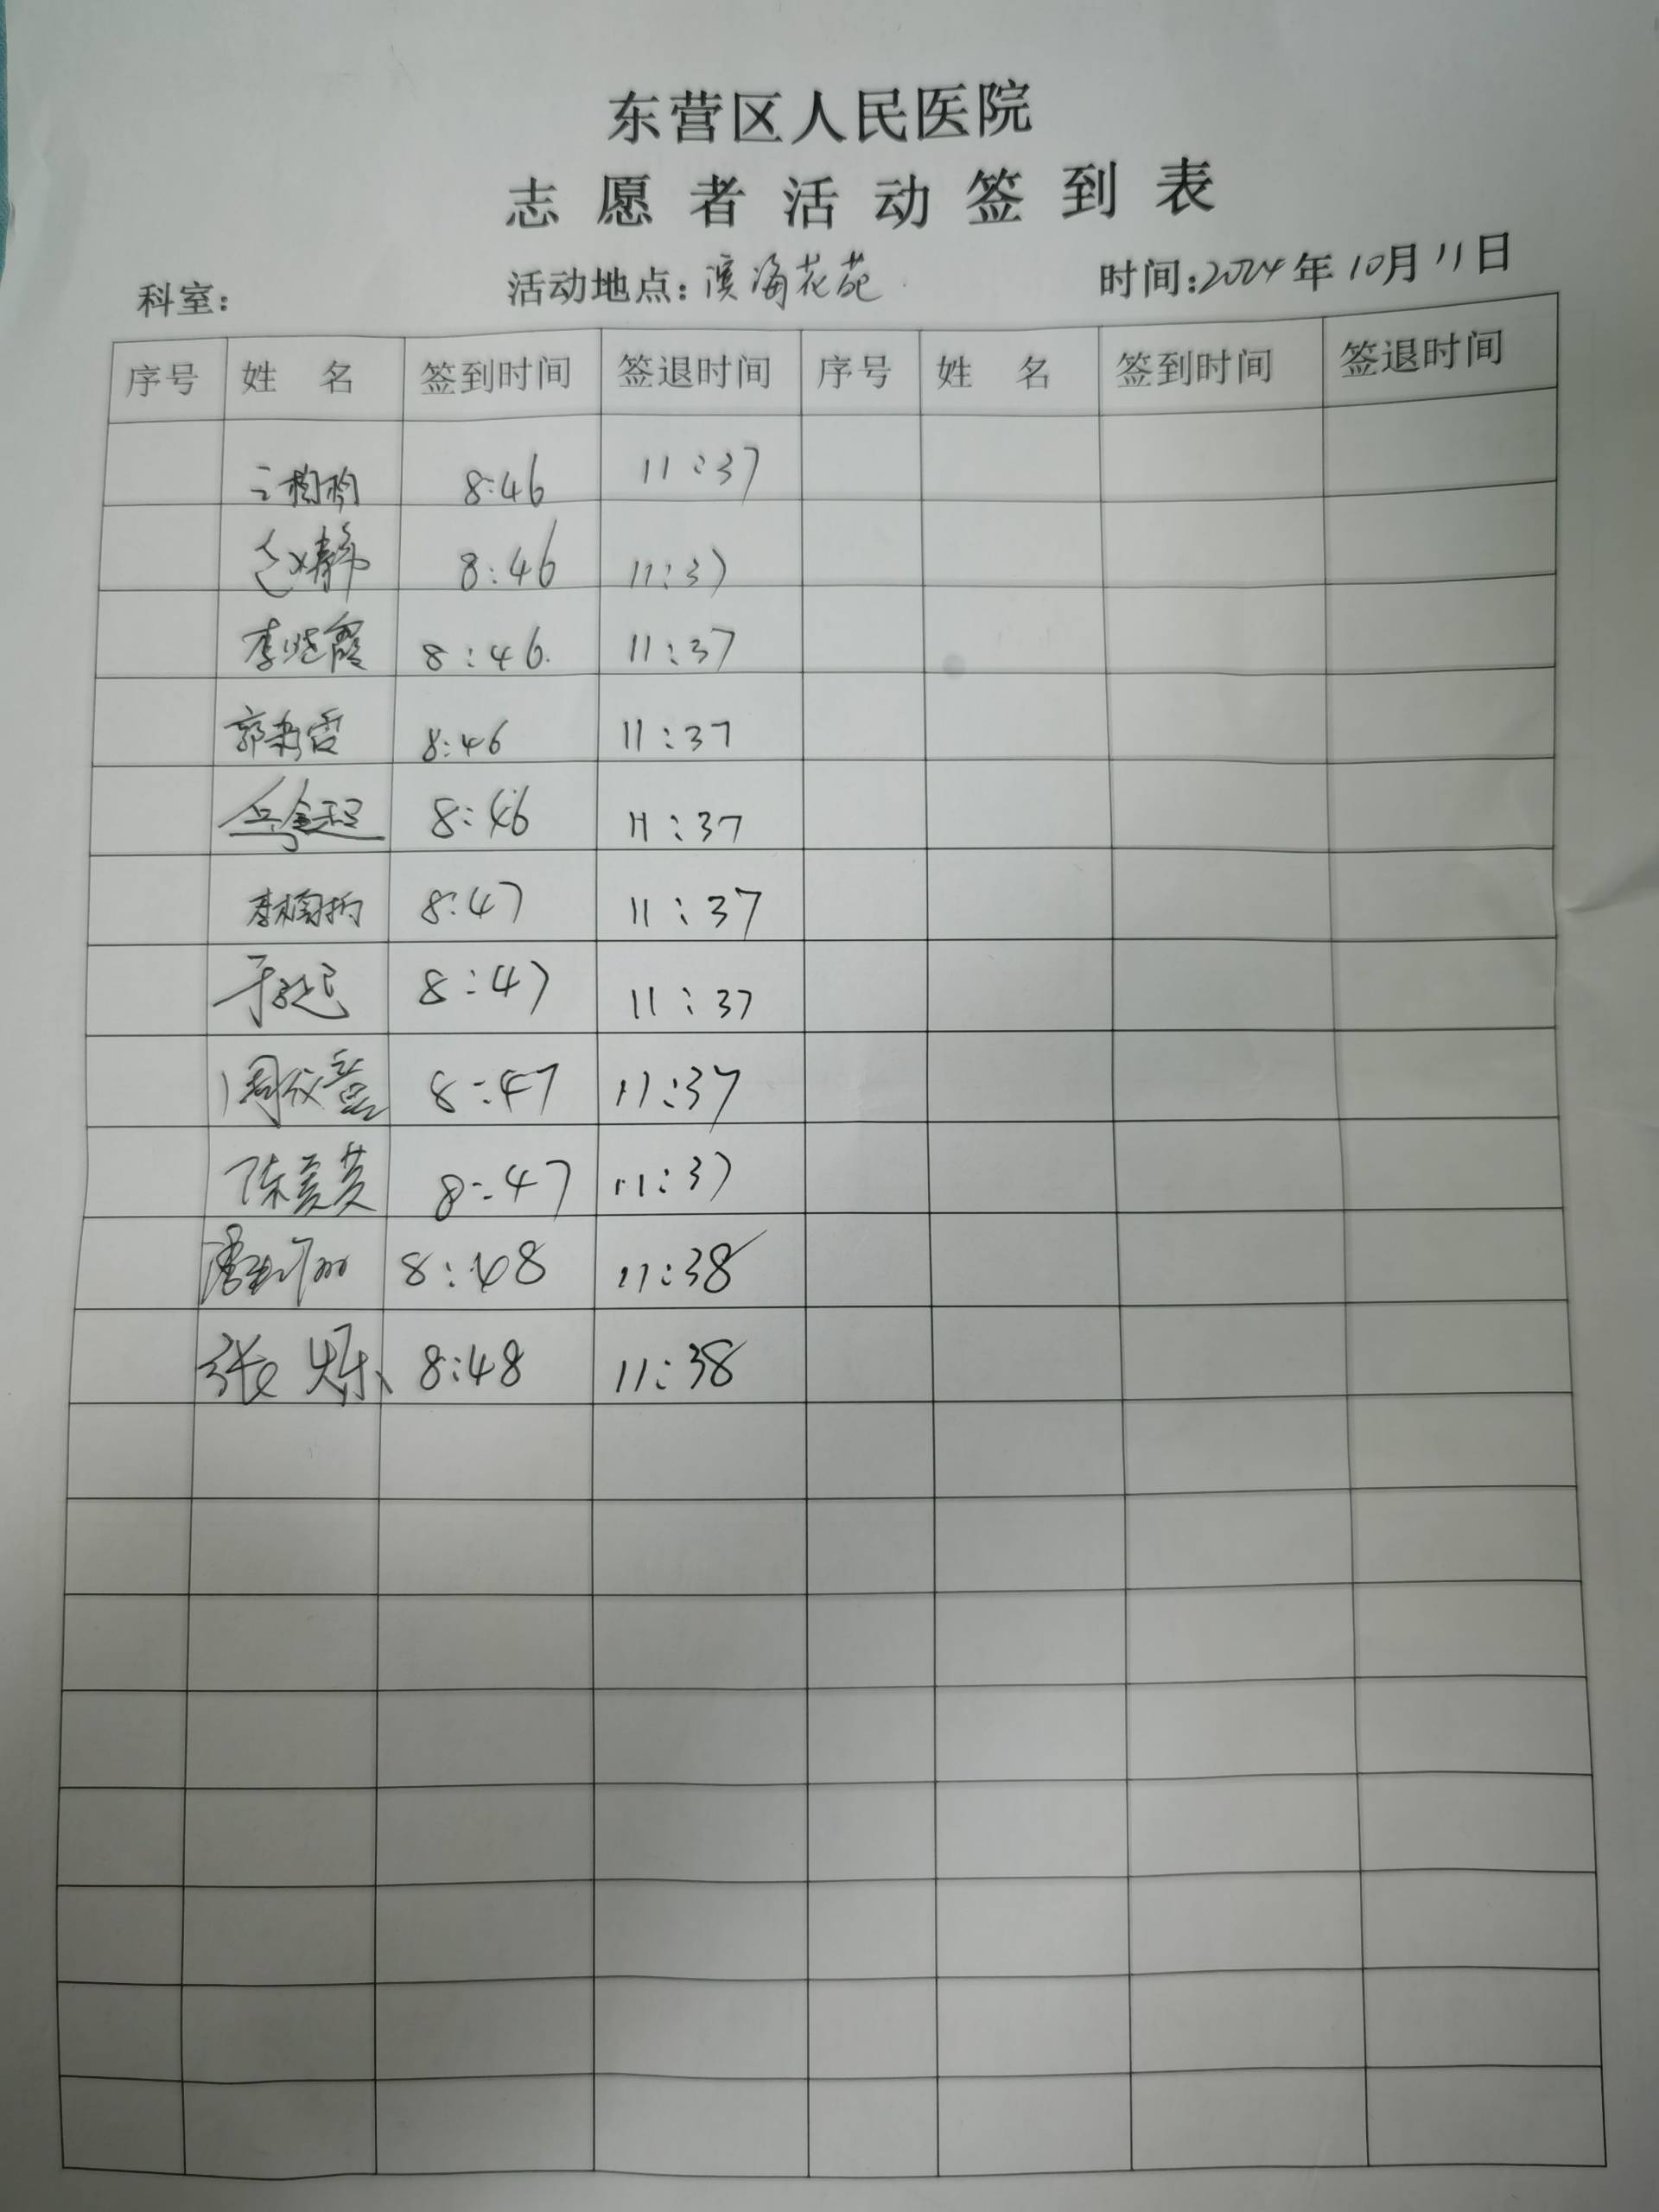 东营区人民医院
志愿者活动签到表
科室： 活动地点：滨海花苑 时间：2024年10月11日
序号 姓名 签到时间 签退时间 序号 姓名 签到时间 签退时间
8:46 11:37
赵婧 8:46 11:37
李晓霞 8:46 11:37
郭秀霞 8:46 11:37
8:46 11:37
8:47 11:37
8:47 11:37
周仪 8:47 11:37
陈 8:47 11:37
8:48 11:38
张烁 8:48 11:38